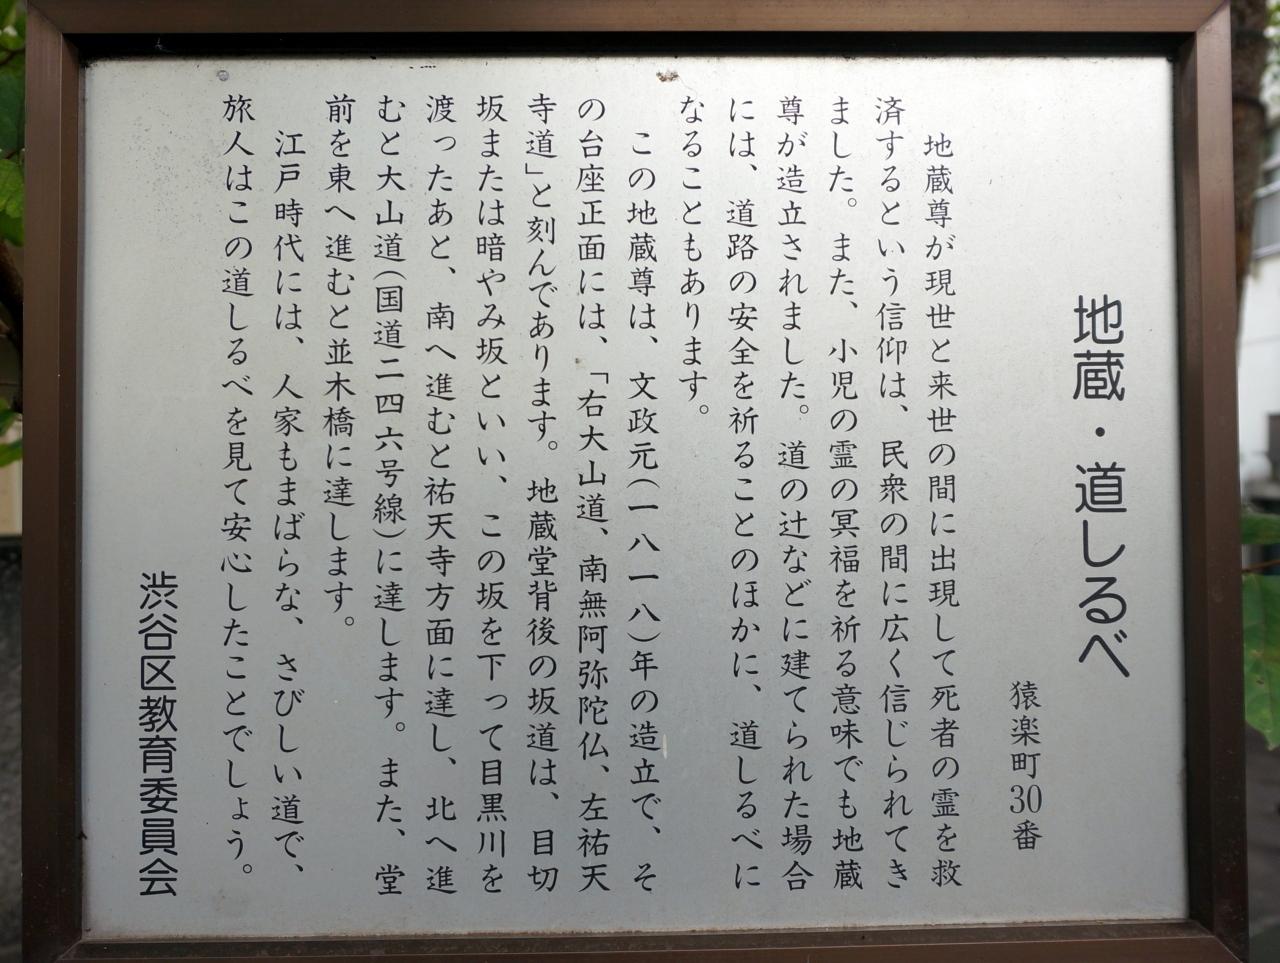 地蔵・道しるべ
猿楽町30番
地蔵尊が現世と来世の間に出現して死者の霊を救
済するという信仰は、民衆の間に広く信じられてき
ました。また、小児の霊の冥福を祈る意味でも地蔵
尊が造立されました。道の辻などに建てられた場合
には、道路の安全を祈ることのほかに、道しるべに
なることもあります。
この地蔵尊は、文政元(一八一八)年の造立で、そ
の台座正面には、「右大山道、南無阿弥陀仏、左祐天
寺道」と刻んであります。地蔵堂背後の坂道は、目切
坂または暗やみ坂といい、この坂を下って目黒川を
渡ったあと、南へ進むと祐天寺方面に達し、北へ進
むと大山道(国道二四六号線)に達します。また、堂
前を東へ進むと並木橋に達します。
江戸時代には、人家もまばらな、さびしい道で、
旅人はこの道しるべを見て安心したことでしょう。
渋谷区教育委員会